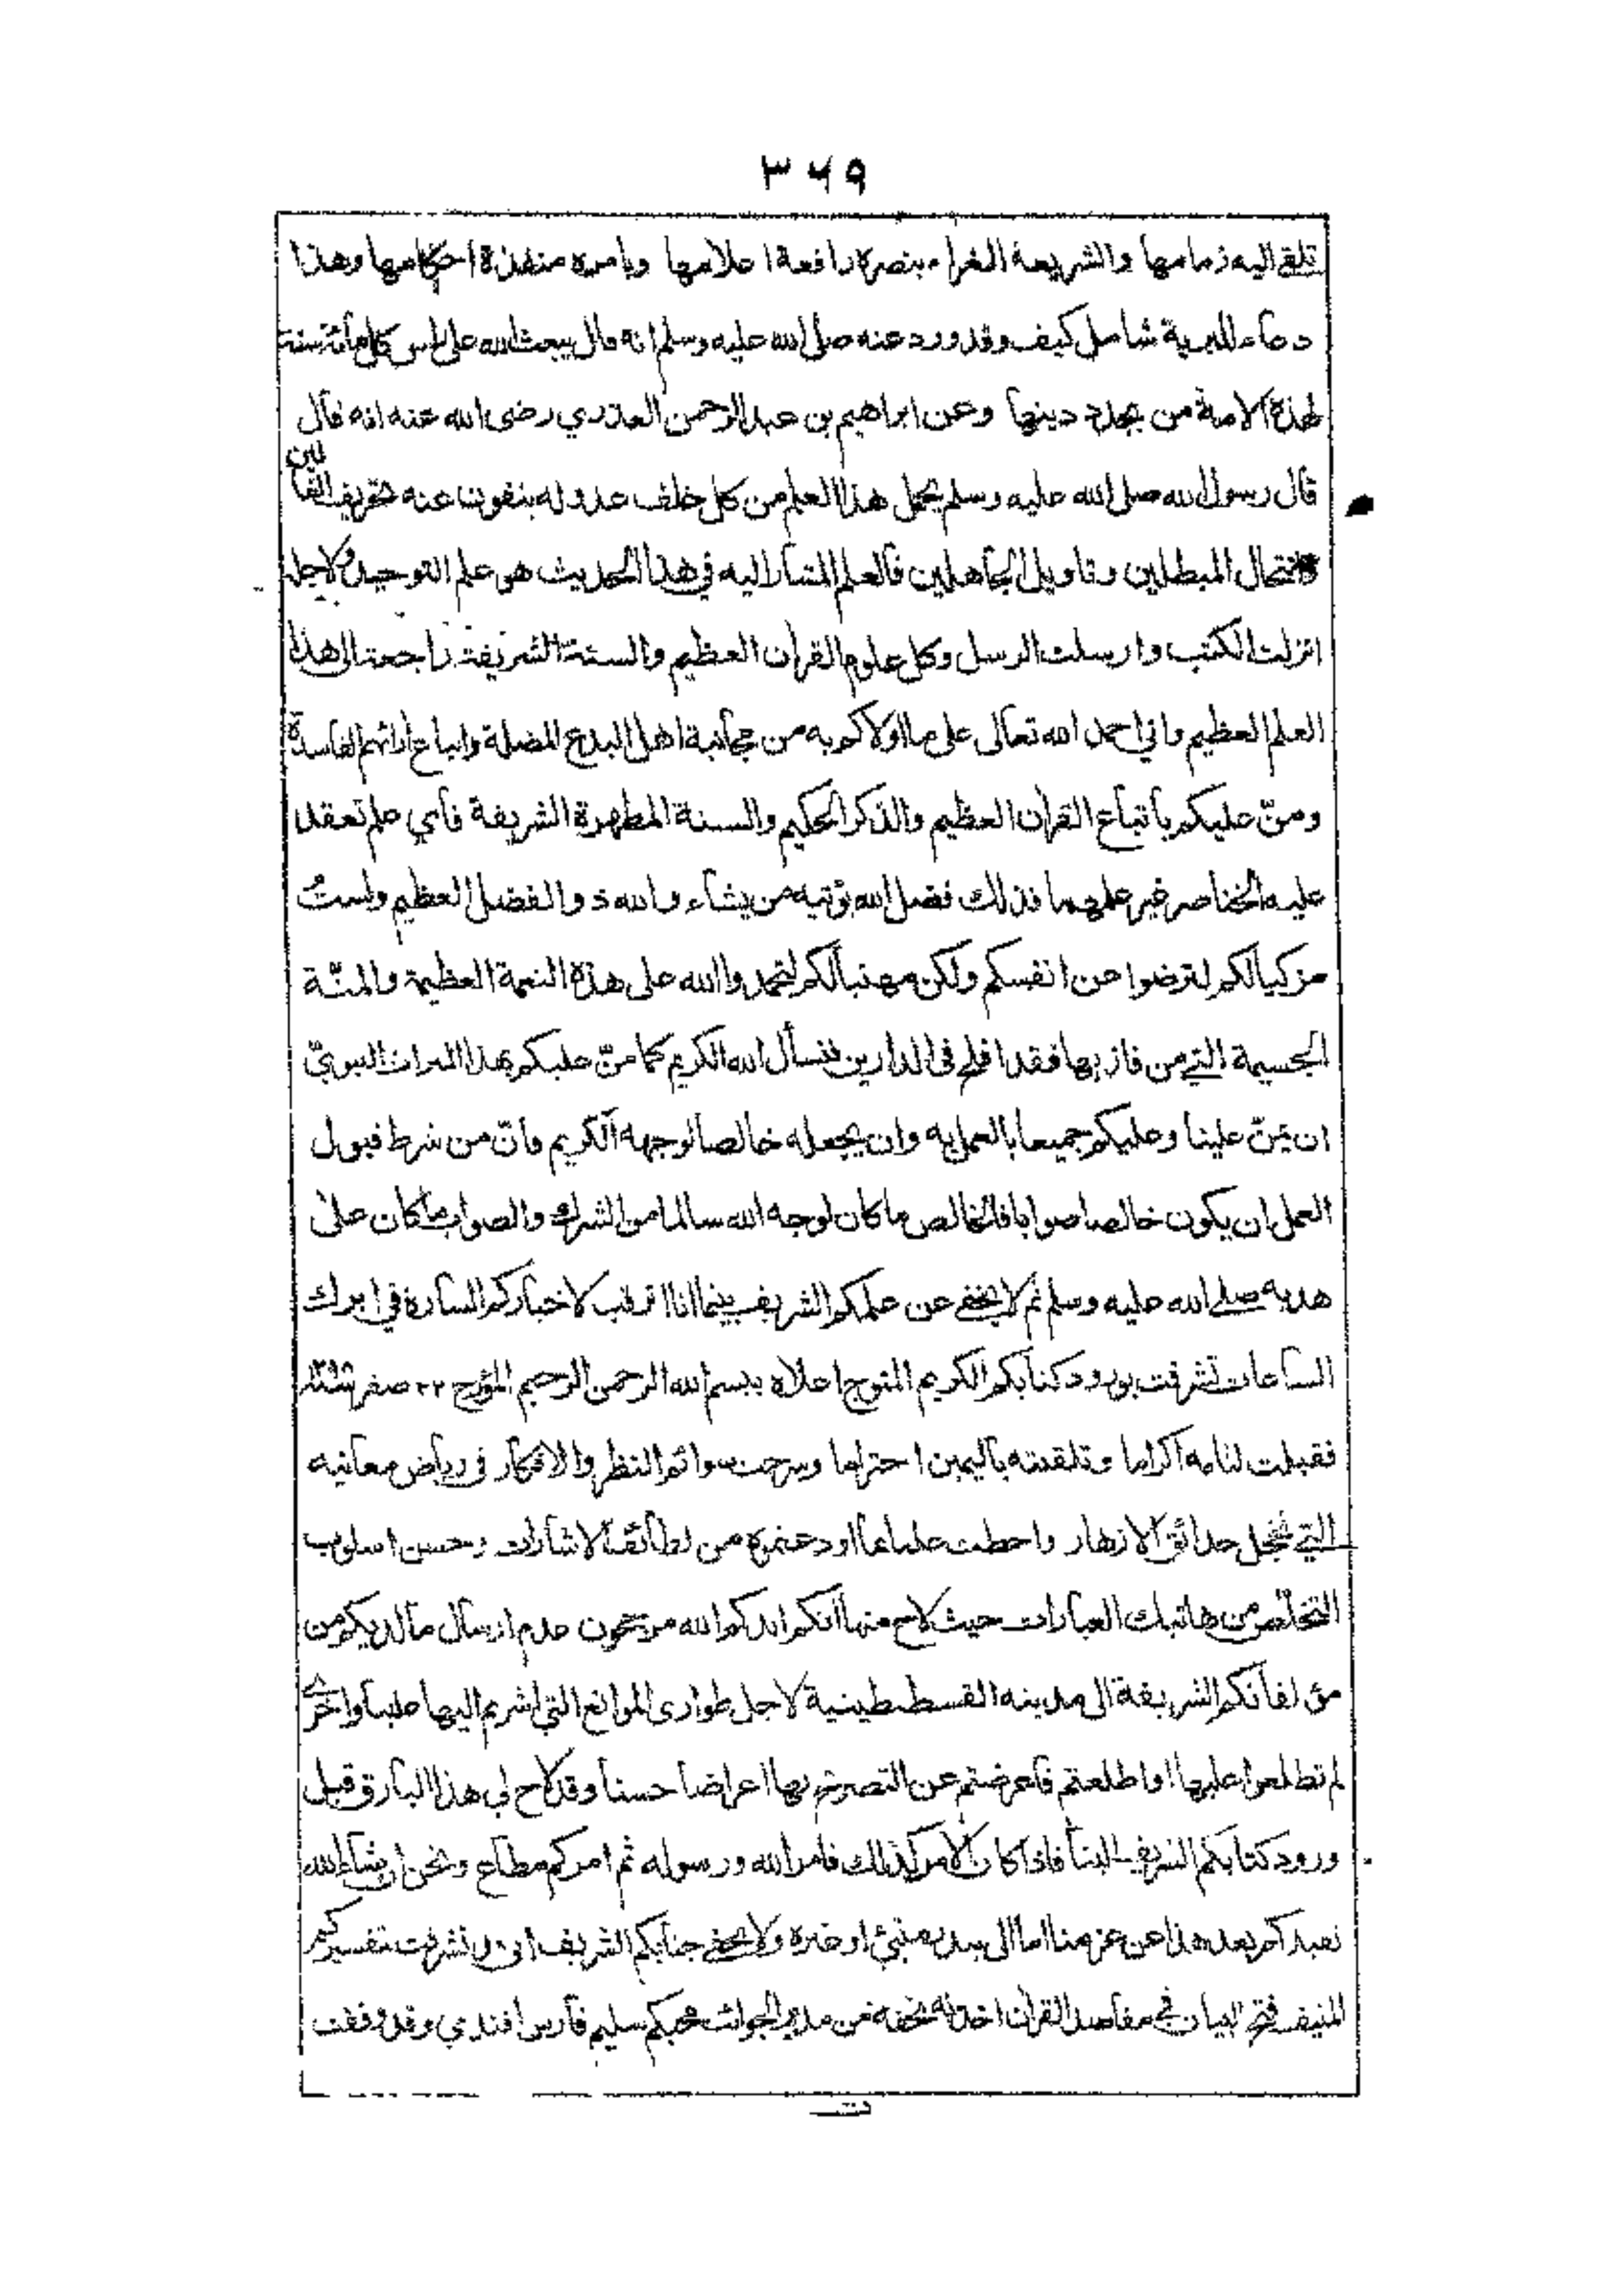 ٣٦٩
تلقي اليه زمامها والشريعة الغراء بنصره رافعة اعلامها وبامره منفذة احكامها وهذا
دعاء للبرية شامل كيف وقد ورد عنه صلى الله عليه وسلم انه قال يبعث الله على راس كل مائة سنة
لهذه الامة من يجدد دينها وعن ابراهيم بن عبد الرحمن العذري رضى الله عنه انه قال
قال رسول الله صلى الله عليه وسلم يحمل هذا العلم من كل خلف عدوله ينفون عنه تحريف الغالين
وانتحال المبطلين وتاويل الجاهلين فالعلم المشار اليه في هذا الحديث هو علم التوحيد ولاجله
انزلت الكتب وارسلت الرسل وكل علوم القرآن العظيم والسنة الشريفة راجعة الى هذا
العلم العظيم واني احمد الله تعالى على ما اولاكم به من مجانبة اهل البدع المضلة واتباع ارائهم الفاسدة
ومنّ عليكم باتباع القرآن العظيم والذكر الحكيم والسنة المطهرة الشريفة فاي علم تعقد
عليه الخناصر غير علمهما فذلك فضل الله يؤتيه من يشاء والله ذو الفضل العظيم ولستُ
مزكيا لكم لترضوا عن انفسكم ولكن مهنيا لكم لتحمدوا الله على هذه النعمة العظيمة والمنّة
الجسيمة التي من فاز بها فقد افلح في الدارين فنسأل الله الكريم كما منّ عليكم بهذا الميراث النبويّ
ان يمنّ علينا وعليكم جميعا بالعمل به وان يجعله خالصا لوجهه الكريم وانّ من شرط قبول
العمل ان يكون خالصا صوابا فالخالص ما كان لوجه الله سالما من الشرك والصواب ما كان على
هديه صلى الله عليه وسلم ثم لا يخفى عن علمكم الشريف بينما انا اترقب لاخباركم السارة في ابرك
الساعات تشرفت بورود كتابكم الكريم المتوج اعلاه ببسم الله الرحمن الرحيم المؤرخ ٢٢ صفر
فقبلت لثامه اكراما وتلقيته باليمين احتراما وسرحت سوائم النظر والافكار في رياض معانيه
التي تخجل حدائق الازهار واحطت علما بما اودعتموه من لطائف الاشارات وحسن اسلوب
التخلص من هاتيك العبارات حيث لاح منها انكم ايدكم الله مرجحون عدم ارسال ما لديكم من
مؤلفاتكم الشريفة الى مدينه القسطنطينية لاجل طوارى الموانع التي اشرتم اليها طلبا واخرى
لم تطلعوا عليها او اطلعتم فاعرضتم عن التصريح بها اعراضا حسنا وقد لاح لي هذا البارق قبل
ورود كتابكم الشريف الينا فاذا كان الامر كذلك فامر الله ورسوله ثم امركم مطاع ونحن ان شاء الله
نعيدكم بعد هذا عن عزمنا اما الى او خيره ولا يخفى جنابكم الشريف اني قد تشرفت بتفسيركم
المنيف فتح البيان في مقاصد القرآن اخذت نسخه من مدير الجوائب محبكم سليم فارس افندي وقد وقفت